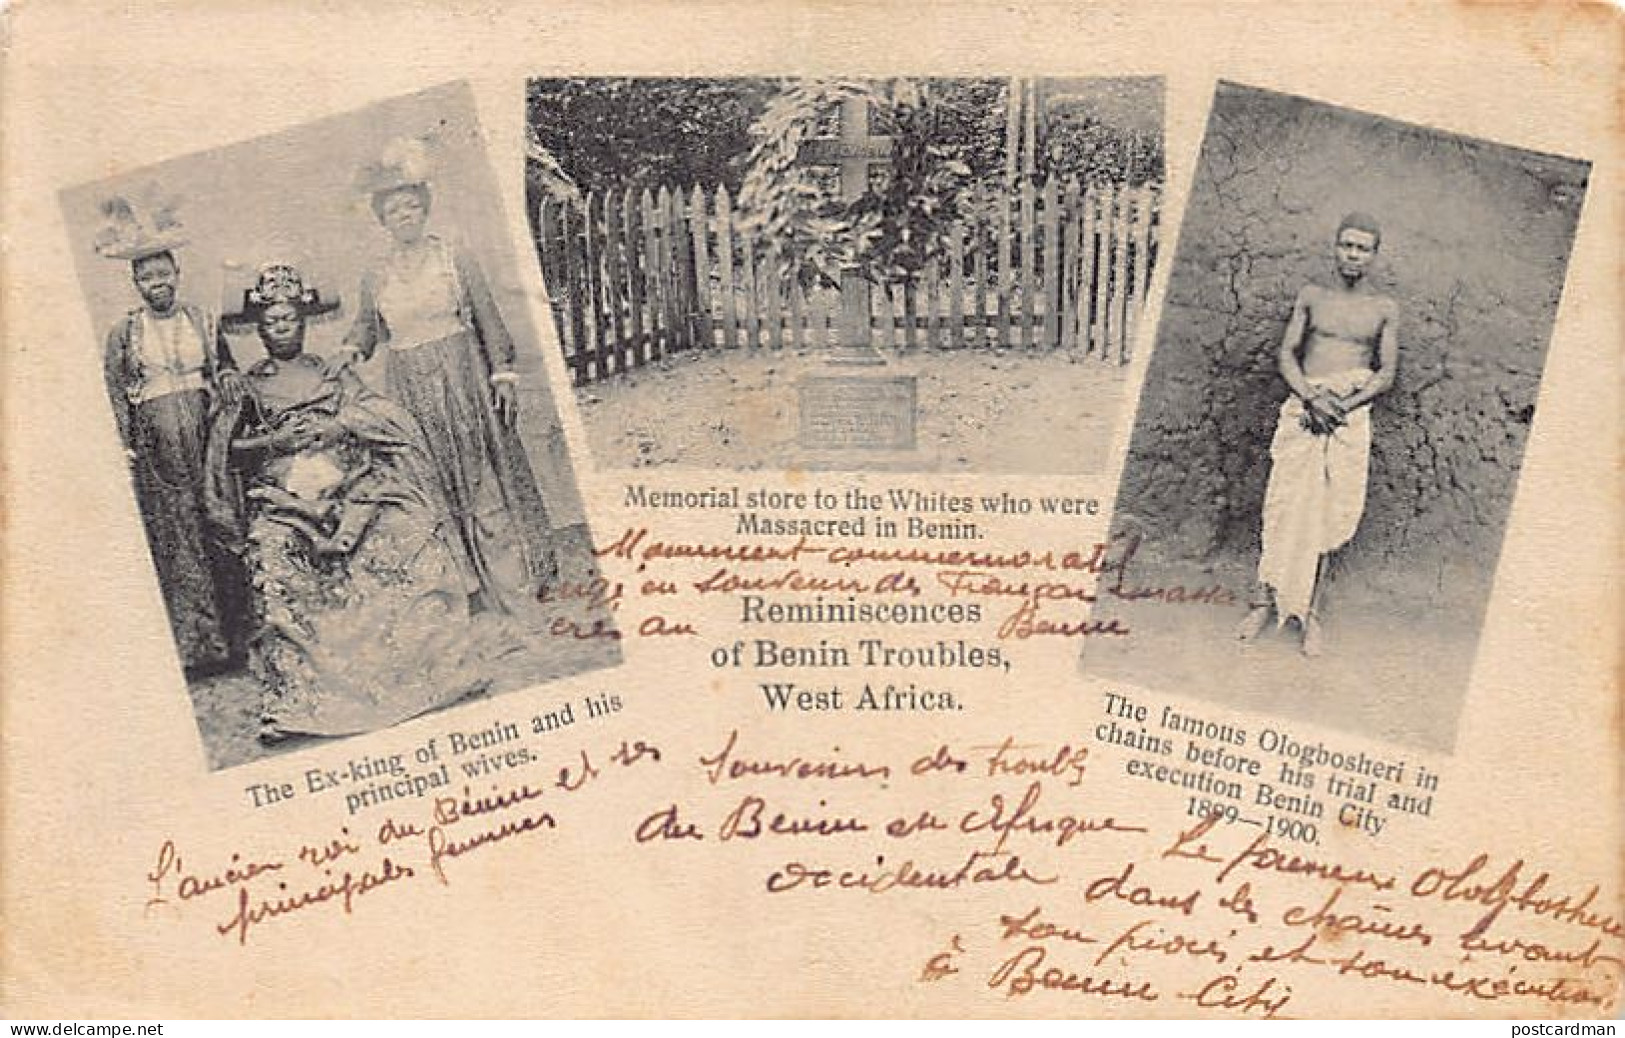 Memorial store to the Whites who were
Massacred in Benin.
Monument commemoratif
érigé en souvenir des Français massa
crés au Benin
Reminiscences
of Benin Troubles,
West Africa.
The Ex-king of Benin and his
principal wives.
L'ancien roi du Bénin et ses
principales femmes
Souvenirs des troubles
du Benin en Afrique
occidentale
The famous Ologbosheri in
chains before his trial and
execution Benin City
1899—1900.
Le fameux Ologbosheri
dans les chaînes avant
son procès, et son exécution,
à Benin City
delcampe.net
postcardman